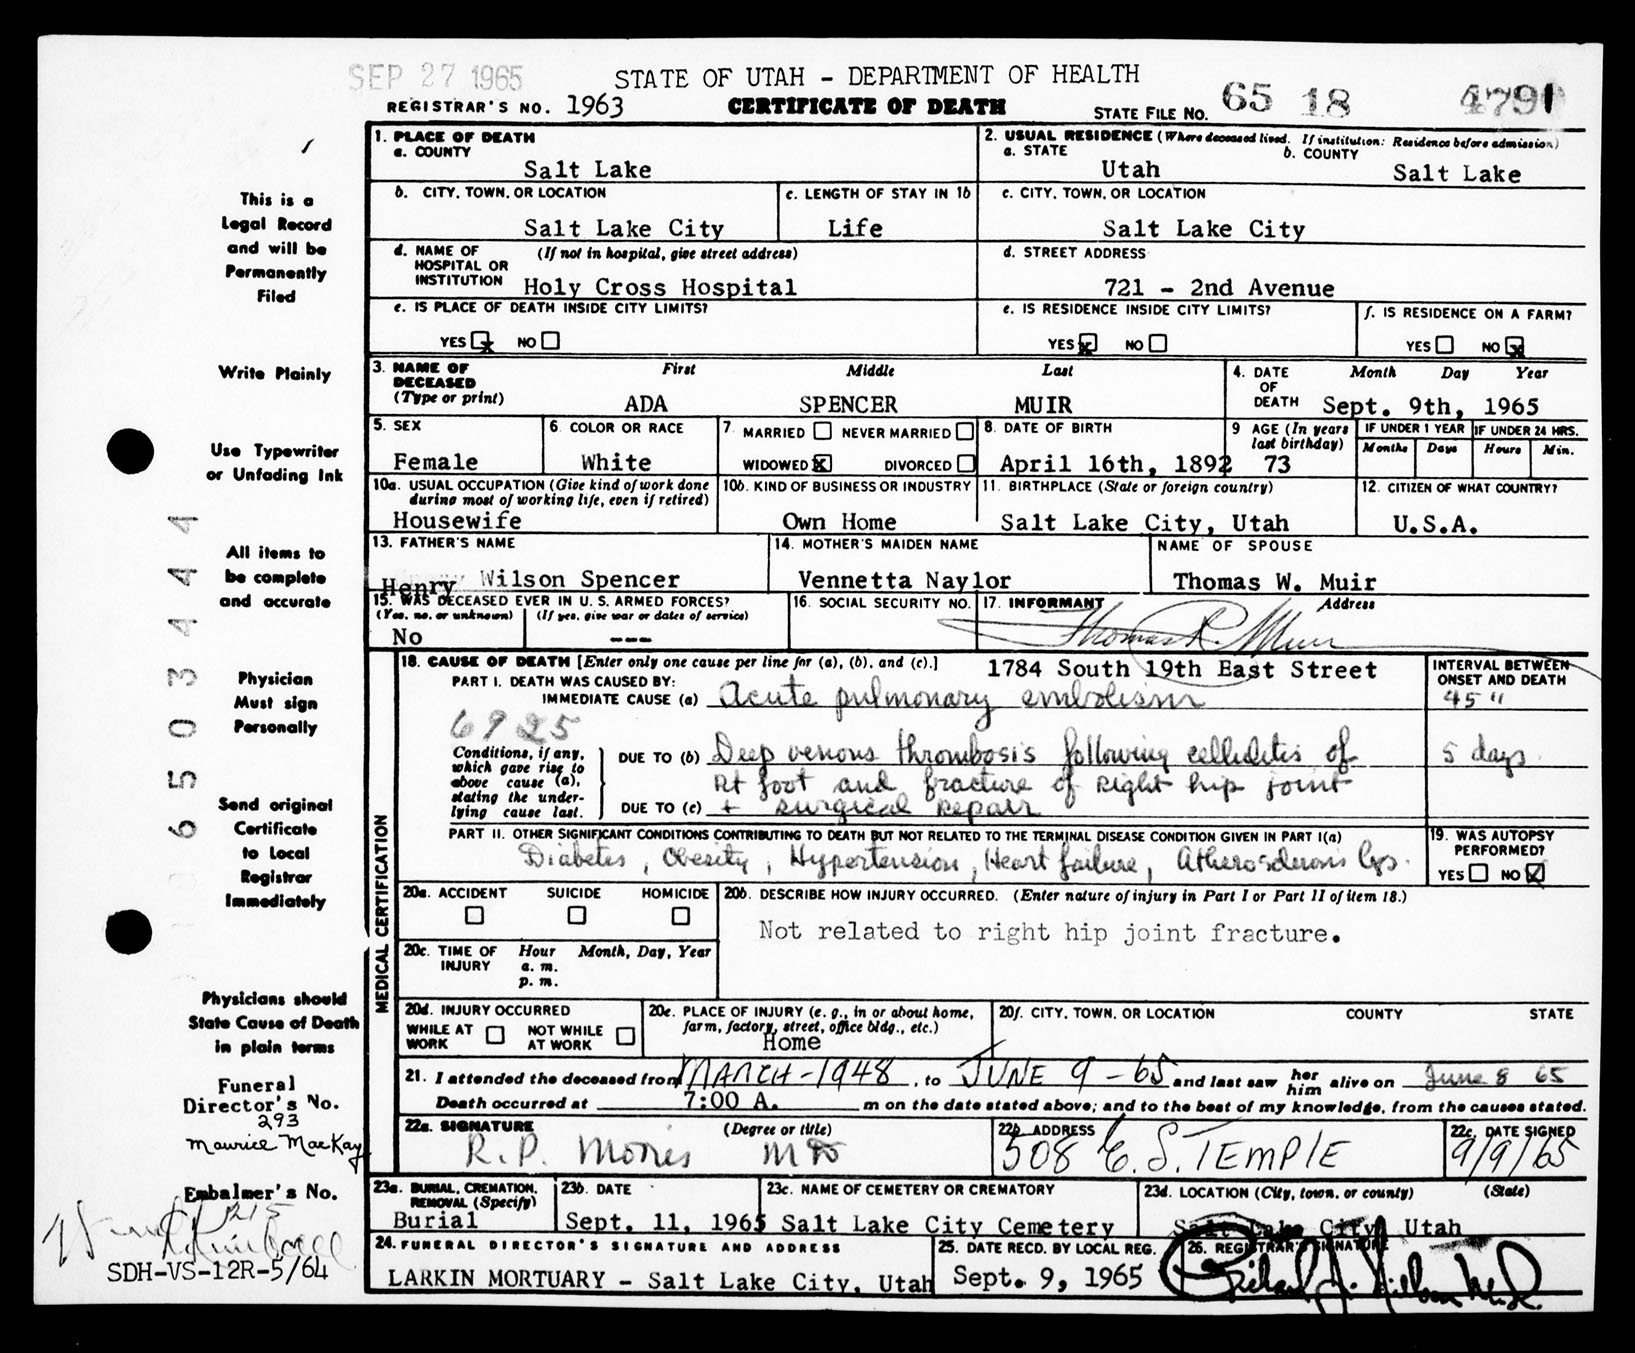 SEP 27 1965
STATE OF UTAH - DEPARTMENT OF HEALTH
REGISTRAR'S NO. 1963 CERTIFICATE OF DEATH STATE FILE NO. 65 18 4791
1. PLACE OF DEATH
a. COUNTY
Salt Lake
2. USUAL RESIDENCE (Where deceased lived. If institution: Residence before admission)
a. STATE b. COUNTY
Utah Salt Lake
b. CITY, TOWN, OR LOCATION
Salt Lake City
c. LENGTH OF STAY IN 1b
Life
c. CITY, TOWN, OR LOCATION
Salt Lake City
d. NAME OF HOSPITAL OR INSTITUTION (If not in hospital, give street address)
Holy Cross Hospital
d. STREET ADDRESS
721 - 2nd Avenue
e. IS PLACE OF DEATH INSIDE CITY LIMITS?
YES x NO
e. IS RESIDENCE INSIDE CITY LIMITS?
YES x NO
f. IS RESIDENCE ON A FARM?
YES NO x
3. NAME OF DECEASED (Type or print)
First Middle Last
ADA SPENCER MUIR
4. DATE OF DEATH
Month Day Year
Sept. 9th, 1965
5. SEX
Female
6. COLOR OR RACE
White
7. MARRIED NEVER MARRIED
WIDOWED x DIVORCED
8. DATE OF BIRTH
April 16th, 1892
9 AGE (In years last birthday)
73
IF UNDER 1 YEAR
Months Days
IF UNDER 24 HRS.
Hours Min.
10a. USUAL OCCUPATION (Give kind of work done during most of working life, even if retired)
Housewife
10b. KIND OF BUSINESS OR INDUSTRY
Own Home
11. BIRTHPLACE (State or foreign country)
Salt Lake City, Utah
12. CITIZEN OF WHAT COUNTRY?
U.S.A.
13. FATHER'S NAME
Henry Wilson Spencer
14. MOTHER'S MAIDEN NAME
Vennetta Naylor
NAME OF SPOUSE
Thomas W. Muir
15. WAS DECEASED EVER IN U.S. ARMED FORCES?
(Yes, no, or unknown) (If yes, give war or dates of service)
No ---
16. SOCIAL SECURITY NO.
17. INFORMANT Address
Thomas R. Muir
1784 South 19th East Street
18. CAUSE OF DEATH [Enter only one cause per line for (a), (b), and (c).]
PART I. DEATH WAS CAUSED BY:
IMMEDIATE CAUSE (a) Acute pulmonary embolism
6925
Conditions, if any, which gave rise to above cause (a), stating the underlying cause last.
DUE TO (b) Deep venous thrombosis following cellulitis of
Rt foot and fracture of right hip joint
DUE TO (c) + surgical repair
INTERVAL BETWEEN ONSET AND DEATH
45"
5 days
PART II. OTHER SIGNIFICANT CONDITIONS CONTRIBUTING TO DEATH BUT NOT RELATED TO THE TERMINAL DISEASE CONDITION GIVEN IN PART I(a)
Diabetes, Obesity, Hypertension, Heart failure,
19. WAS AUTOPSY PERFORMED?
YES NO x
20a. ACCIDENT SUICIDE HOMICIDE
20b. DESCRIBE HOW INJURY OCCURRED. (Enter nature of injury in Part I or Part II of item 18.)
Not related to right hip joint fracture.
20c. TIME OF INJURY
Hour Month, Day, Year
a. m.
p. m.
20d. INJURY OCCURRED
WHILE AT WORK NOT WHILE AT WORK
20e. PLACE OF INJURY (e. g., in or about home, farm, factory, street, office bldg., etc.)
Home
20f. CITY, TOWN, OR LOCATION COUNTY STATE
21. I attended the deceased from MARCH-1948, to JUNE 9-65 and last saw her him alive on June 8 65
Death occurred at 7:00 A. m on the date stated above; and to the best of my knowledge, from the causes stated.
22a. SIGNATURE (Degree or title)
R.P. Morris MD
22b. ADDRESS
508 E. S. TEMPLE
22c. DATE SIGNED
9/9/65
23a. BURIAL, CREMATION, REMOVAL (Specify)
Burial
23b. DATE
Sept. 11, 1965
23c. NAME OF CEMETERY OR CREMATORY
Salt Lake City Cemetery
23d. LOCATION (City, town, or county) (State)
Salt Lake City, Utah
24. FUNERAL DIRECTOR'S SIGNATURE AND ADDRESS
LARKIN MORTUARY - Salt Lake City, Utah
25. DATE RECD. BY LOCAL REG.
Sept. 9, 1965
26. REGISTRAR'S SIGNATURE
MEDICAL CERTIFICATION
This is a
Legal Record
and will be
Permanently
Filed
Write Plainly
Use Typewriter
or Unfading Ink
All items to
be complete
and accurate
Physician
Must sign
Personally
Send original
Certificate
to Local
Registrar
Immediately
Physicians should
State Cause of Death
in plain terms
Funeral
Director's No.
293
Maurice MacKay
Embalmer's No.
1215
SDH-VS-12R-5/64
6503444